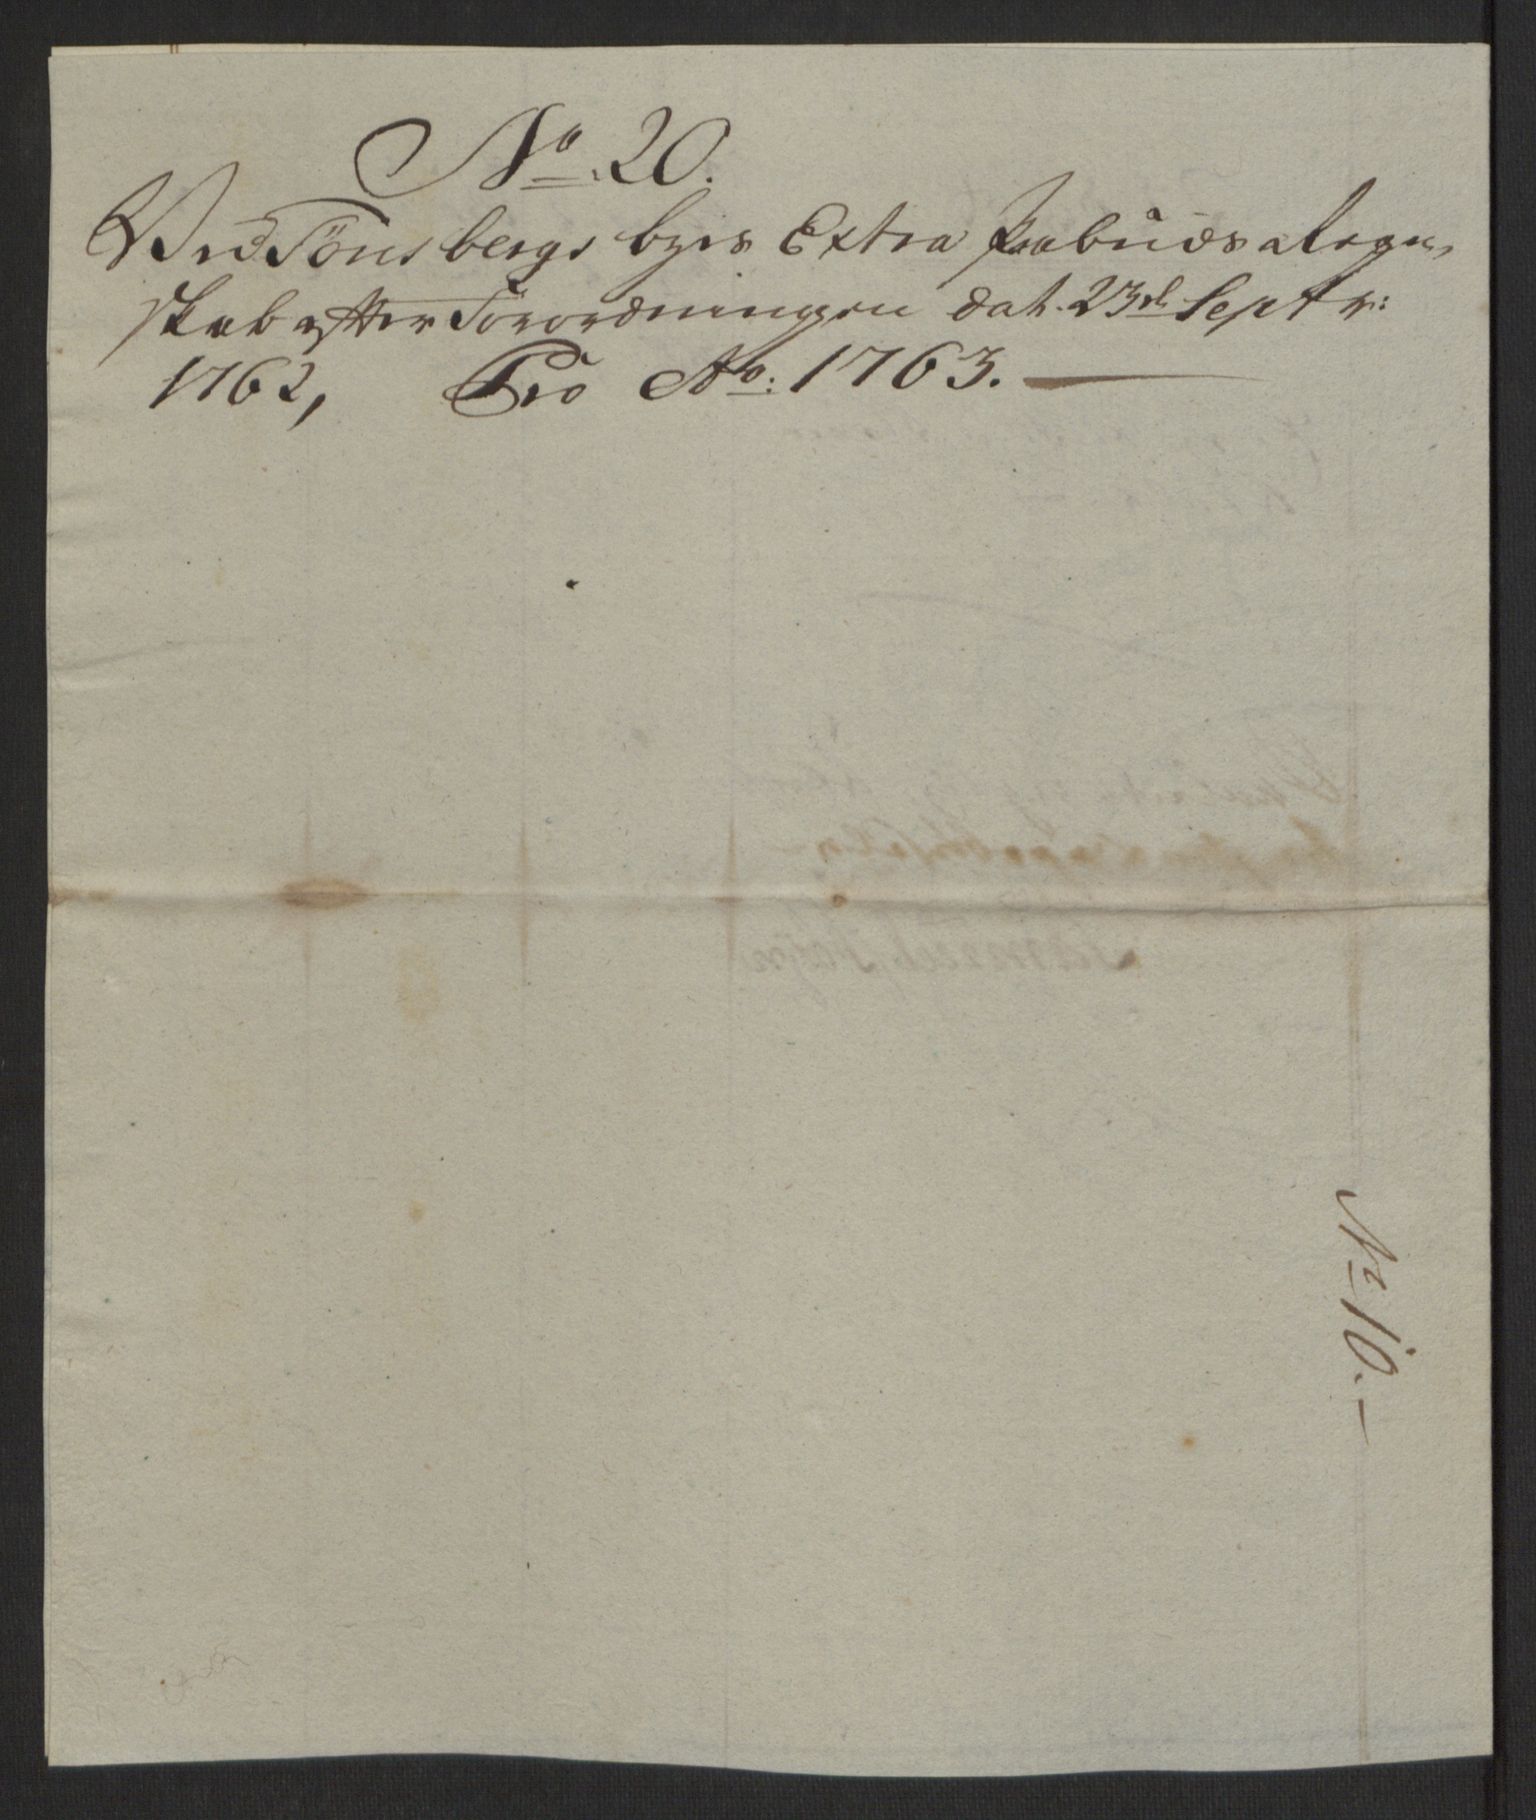 No. 20.
Ved Tönsbergs byes Extra Paabuds Regn,,
skab efter Forordningen dat. 23de Septr:
1762, Pro Ao: 1763.
No 10.